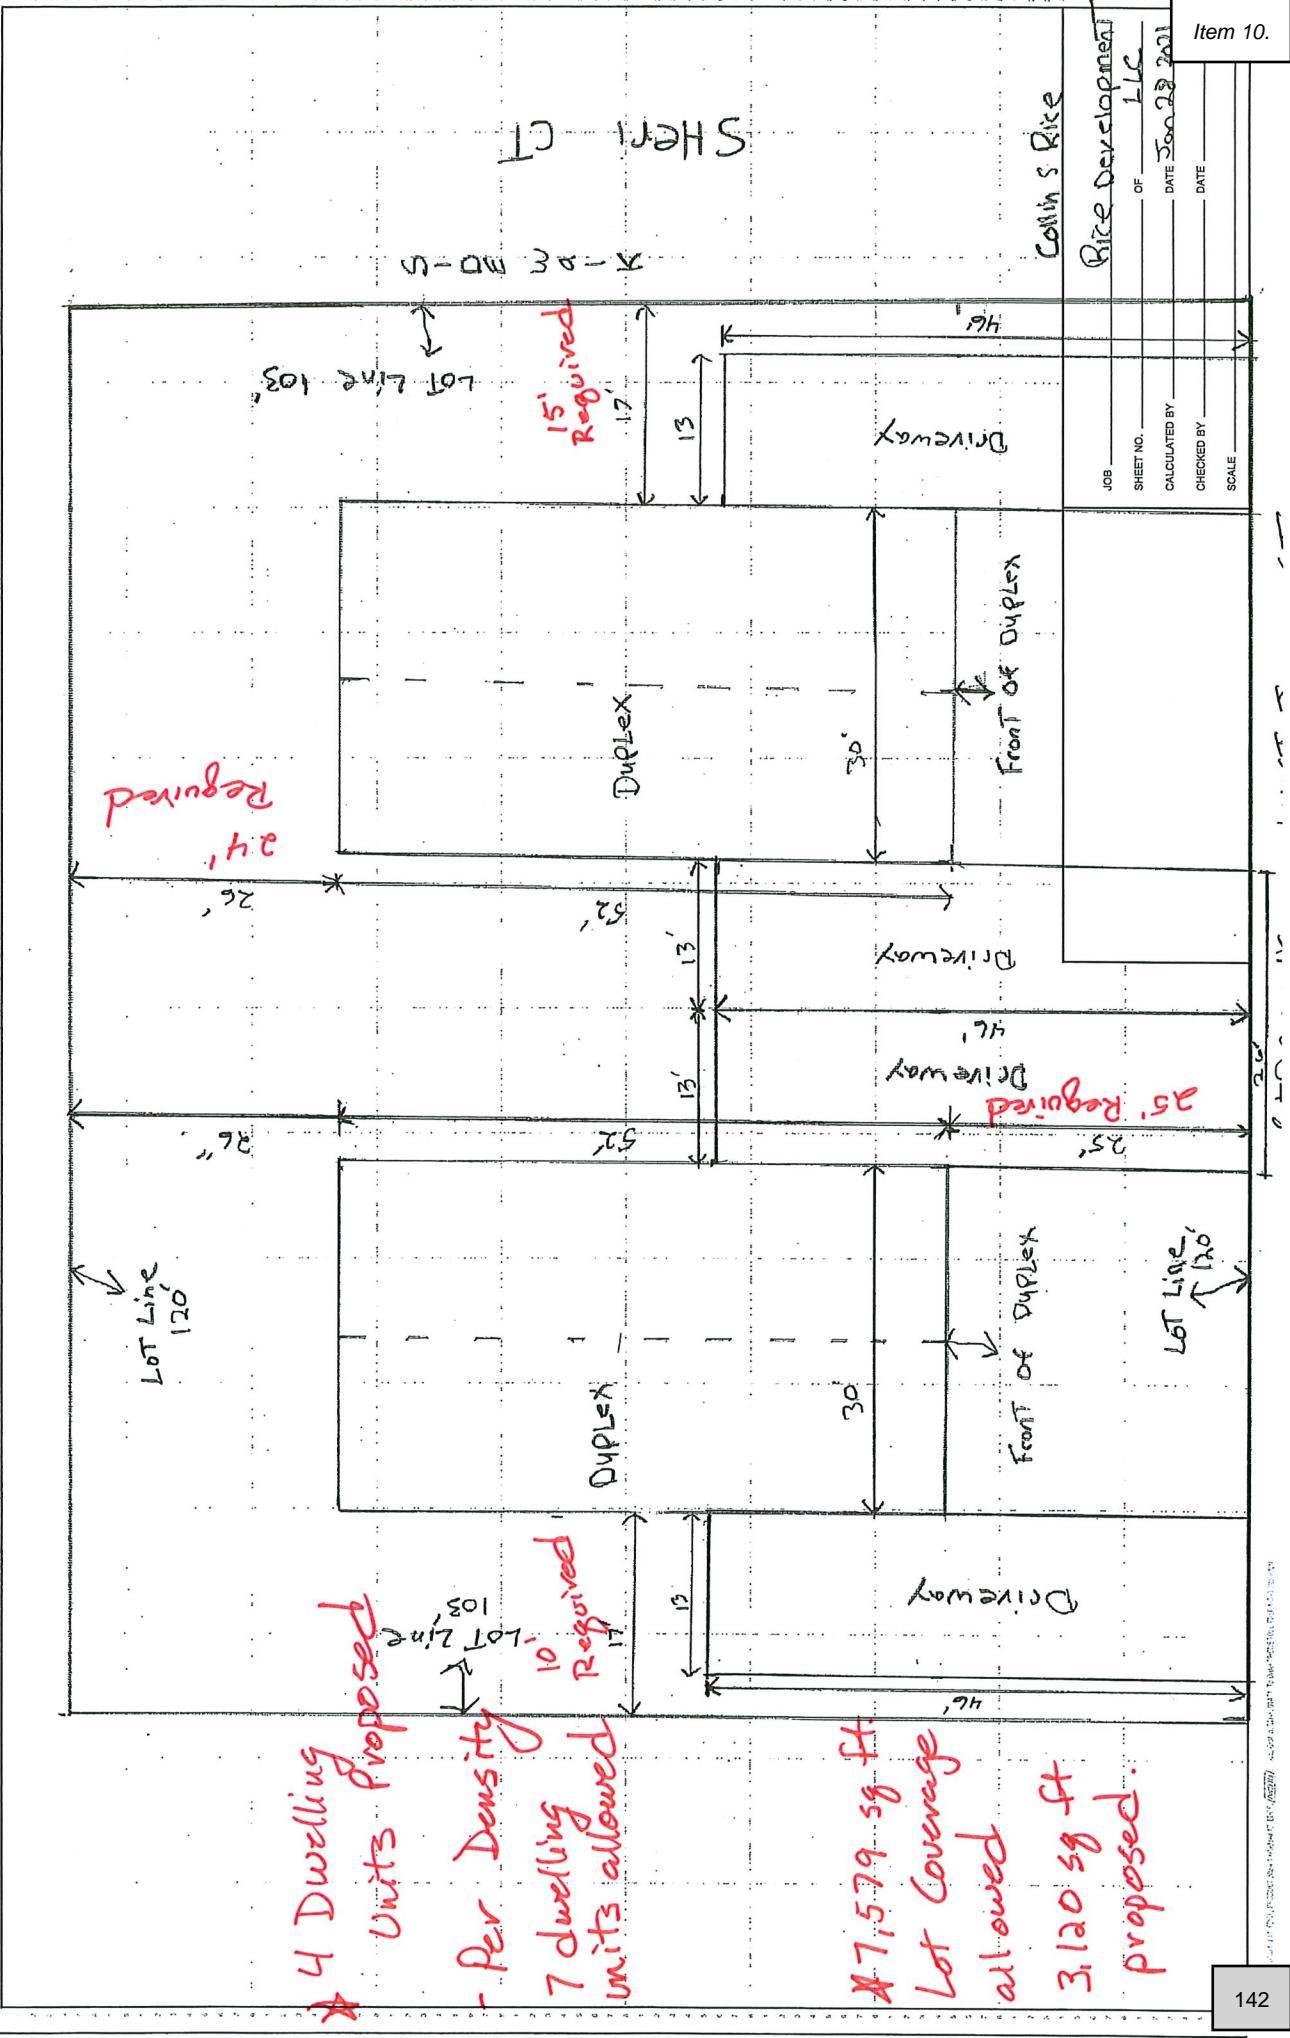 Item 10.
Collin S Rice
JOB Rice Development
SHEET NO. OF LLC
CALCULATED BY DATE Jan 28 2021
CHECKED BY DATE
SCALE
SHeri CT
LOT Line 103'
15'
Required
17'
13
46'
Driveway
DupLex
30'
Front Of DupLex
24'
Required
26'
52'
13'
Driveway
46'
13'
Driveway
26'
26"
52'
25' Required
25'
LoT Line
120'
LoT Line
120'
DupLex
30'
Front Of DupLex
LoT Line
103'
10'
Required
17'
13
46'
Driveway
* 4 Dwelling
Units Proposed
- Per Density
7 dwelling
units allowed
* 7,579 sq ft.
Lot Coverage
allowed
3,120 sq ft
proposed.
142